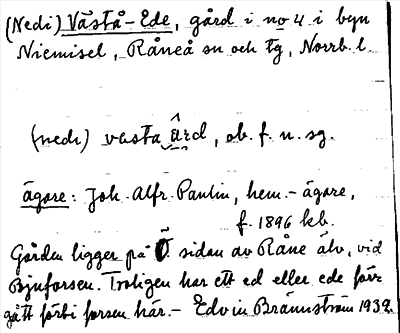 (Nedi) Västå-Ede, gård i no 4 i byn
Niemisel, Råneå sn och tg, Norrb. l.
(nedi) vasta ârd, ob. f. n. sg.
ägare: Joh. Alfr. Paulin, hem.-ägare,
f. 1896 kb.
Gården ligger på Ö. sidan av Råne älv, vid
Bjuforsen. Troligen har ett ed eller ede förr
gått förbi forsen här. - Edvin Brännström 1932.